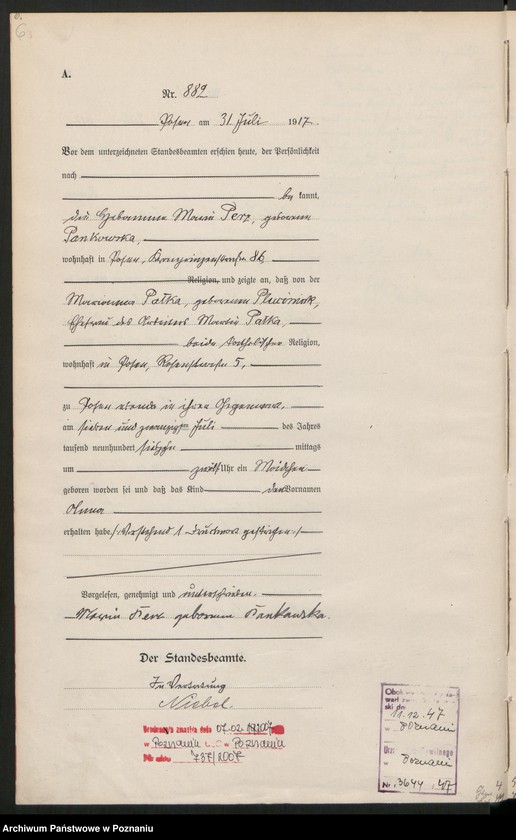 A.
Nr. 882
Posen am 31 Juli 1917.
Vor dem unterzeichneten Standesbeamten erschien heute, der Persönlichkeit
nach
be kannt,
die Hebamme Marie Perz, geborene
Pankowska,
wohnhaft in Posen, Kronprinzenstraße 86,
Religion, und zeigte an, daß von der
Marianna Patka, geborenen
Ehefrau des Arbeiters Martin Patka,
beide katholischer Religion,
wohnhaft in Posen, Rosenstraße 5,
zu Posen in ihrer Gegenwart,
am sieben und zwanzigsten Juli des Jahres
tausend neunhundert siebzehn mittags
um zwölf Uhr ein Mädchen
geboren worden sei und daß das Kind den Vornamen
Anna
erhalten habe. /: Vorstehend 1 Druckwort gestrichen. :/
Vorgelesen, genehmigt und unterschrieben.
Marie Perz geborene Pankowska.
Der Standesbeamte.
In Vertretung
Urodzony zmarła dnia 07.02.
w Poznaniu Poznaniu
Nr aktu 737/2007
11.12.47
w Poznani
Poznani
Nr. 3644 47
Archiwum Państwowe w Poznaniu